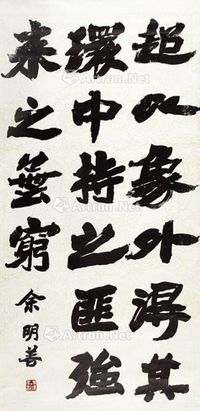 超以象外得其
環中持之匪強
来之無窮
余明善
Artron.Net